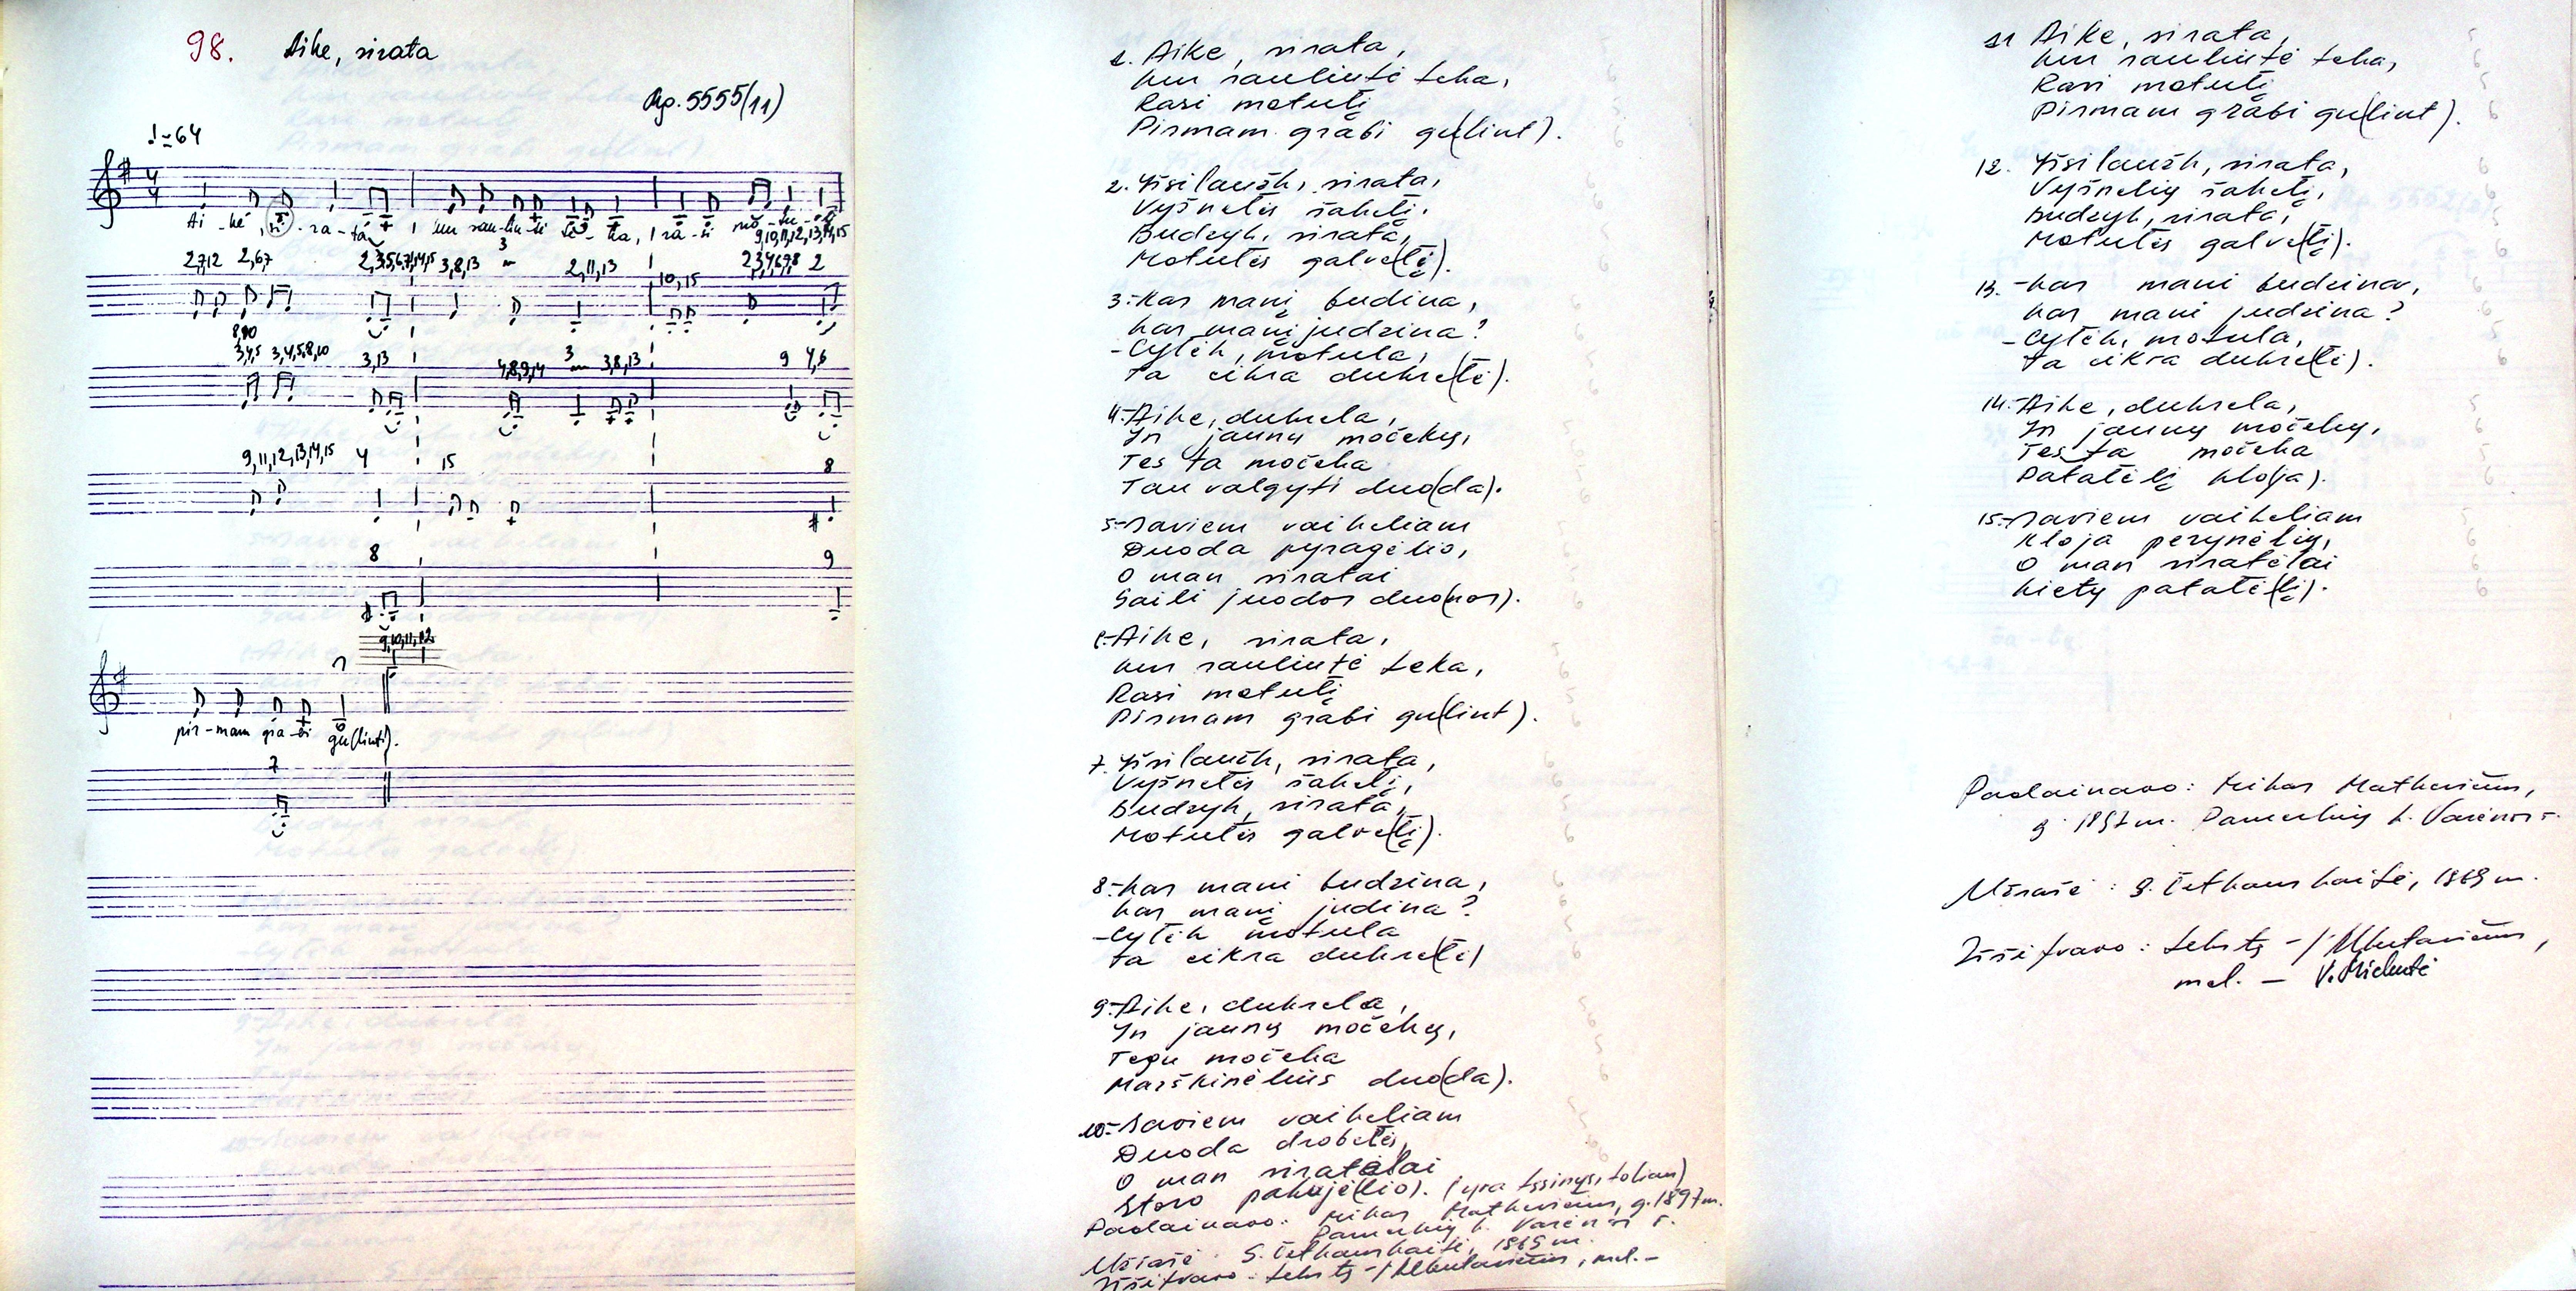 98. Aike, sirata
Rp. 5555(11)
♩=64
Ai - kė, si - ra - ta kur sau-liu-tė te - ka, ra - si mo - tu - lį
9,10,11,12,13,14,15
2,7,12 2,6,7 2,3,5,6,7,14,15 3,8,13 3 2,11,13 10,15 2,3,4,6,7,8 2
8,10
3,4,5 3,4,5,8,10 3,13 4,8,9,14 3 3,8,13 9 4,6
9,11,12,13,14,15 4 15 8
8 9
9,10,11,12
pir-mam gra-bi gu(linti).
7
1. Aike, sirata,
kur sauliutė teka,
Rasi motulį
Pirmam grabi gu(lint).
2. Išsilaužk, sirata,
Vyšnelės šakelį,
Budzyk, sirata,
Motulės galve(lį).
3.-Kas manį budina,
kas manį judzina?
-Cylėk, motula,
ta cikra dukre(lė).
4.-Aike, dukrela,
In jauny močeky,
Tes ta močeka
Tau valgyti duo(da).
5.-Saviem vaikeliam
Duoda pyragėlio,
O man siratai
Saili juodos duo(nos).
6.-Aike, sirata,
kur sauliutė teka,
Rasi motulį
Pirmam grabi gu(lint).
7. Išsilaužk, sirata,
Vyšnelės šakelį,
Budzyk, sirata,
Motulės galve(lį).
8.-kas mani budzina,
kas manį judina?
-Cylėk motula
ta cikra dukre(lė)
9.-Aike, dukrela,
In jauny močeky,
Tegu močeka
Marškinėlius duo(da).
10.-Saviem vaikeliam
Duoda drobelės,
O man siratėlai
Storo pakujė(lio). (yra tęsinys, toliau)
Padainavo: Mikas Matkevičius, g. 1897 m.
Pamerkių k. Varėnos r.
Užrašė S. Četkauskaitė, 1969 m.
Iššifravo: tekstą - mel. -
11 Aike, sirata,
kur sauliutė teka,
Rasi motulį
Pirmam grabi gu(lint).
12. Išsilaužk, sirata,
Vyšnelių šakelį,
Budzyk, sirata,
Motulės galve(lį).
13. -kas mani budzina,
kas mani judzina?
-Cylėk, motula,
ta cikra dukre(lė).
14.-Aike, dukrela,
In jauny močeky,
Tes ta močeka
Patalėlį klo(ja).
15.-Saviem vaikeliam
kloja perynėlių,
O man siratėlai
kiety patalė(lį).
Padainavo: Mikas Matkevičius,
g. 1897 m. Pamerkių k. Varėnos r.
Užrašė: S. Četkauskaitė, 1969 m.
Iššifravo: tekstą -
mel. - V.